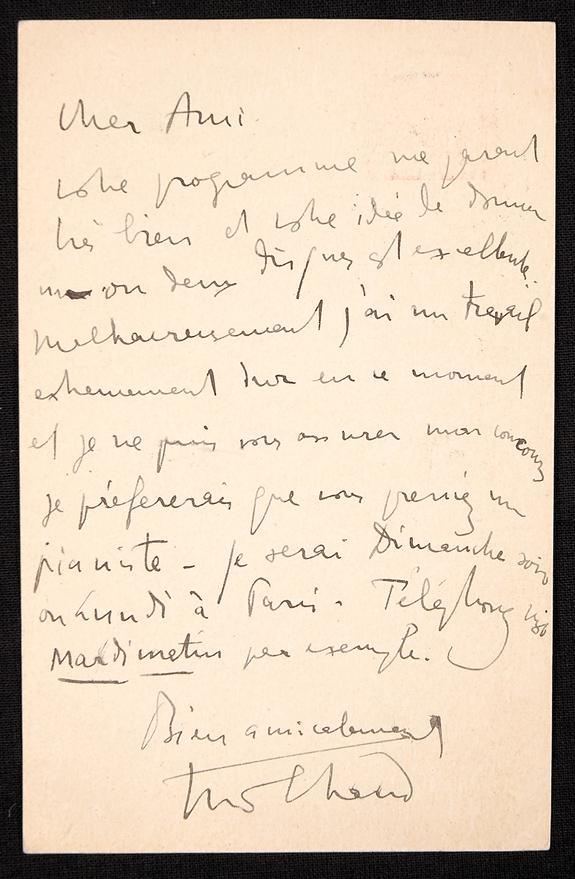 Cher Ami
votre programme me parait
très bien et votre idée de donner
un ou deux disques est excellente.
Malheureusement j'ai un travail
extremement dur en ce moment
et je ne puis vous assurer mon concours
je préfererais que vous preniez un
pianiste - je serai Dimanche soir
ou Lundi à Paris. Téléphonez
Mardi matin par exemple.
Bien amicalement